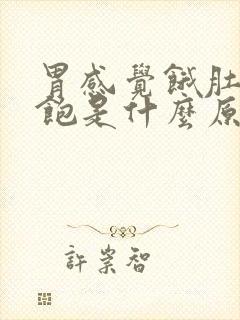 胃感覺餓肚
飽是什麼原
許崇智